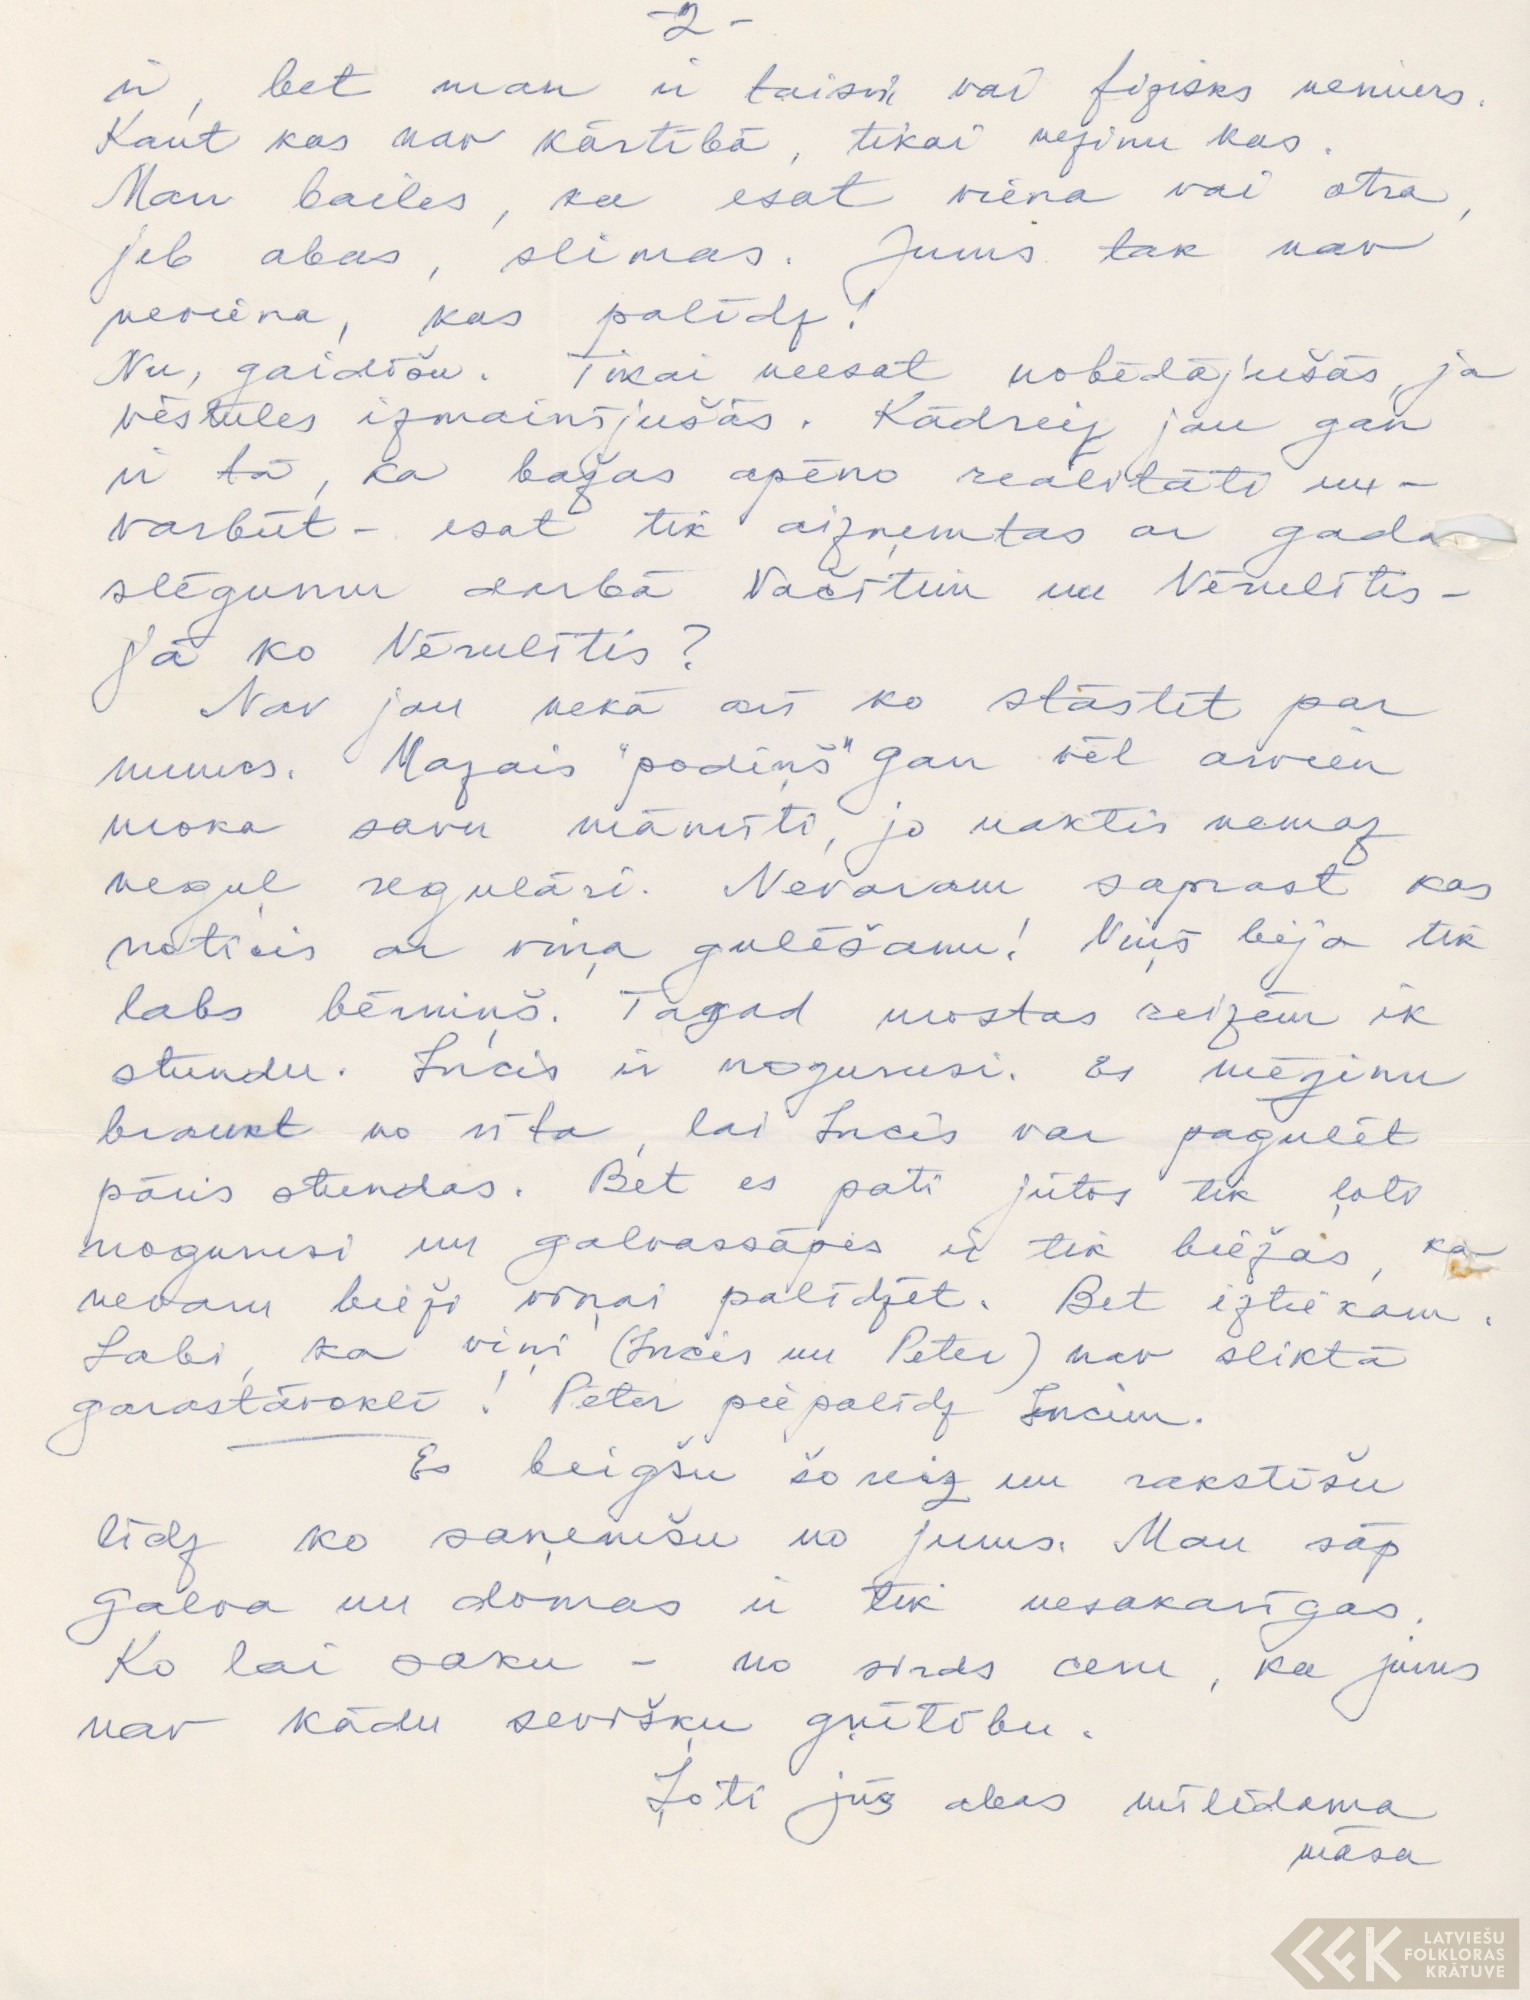 -2-
ir, bet man ir taisni vai fizisks nemiers.
Kaut kas nav kārtībā, tikai nezinu kas.
Man bailes, ka esat viena vai otra,
jeb abas, slimas. Jums tak nav
neviena, kas palīdz!
Nu, gaidīšu. Tikai neesat nobēdājušās, ja
vēstules izmainījušās. Kādreiz jau gan
ir tā, ka bažas apēno realitāti un -
varbūt - esat tik aizņemtas ar gada
slēgumu darbā Vačitim un Vērulītis -
jā ko Vērulītis?
Nav jau nekā arī ko stāstīt par
mums. Mazais "podiņš" gan vēl arvien
moka savu māmīti, jo naktīs nemaz
neguļ regulāri. Nevaram saprast kas
noticis ar viņa gulēšanu! Viņš bija tik
labs bērniņš. Tagad mostas reizēm ik
stundu. Incis ir nogurusi. Es mēģinu
braukt no rīta, lai Incis var pagulēt
pāris stundas. Bet es pati jūtos tik ļoti
nogurusi un galvassāpes ir tik biežas, ka
nevaru bieži viņai palīdzēt. Bet iztiekam.
Labi, ka viņi (Incis un Peter) nav sliktā
garastāvoklī! Peter piepalīdz Incim.
Es beigšu šoreiz un rakstīšu
līdz ko saņemšu no jums. Man sāp
galva un domas ir tik nesakarīgas.
Ko lai saku - no sirds ceru, ka jums
nav kādu sevišķu grūtību.
Ļoti jūs abas mīlēdama
māsa
LATVIEŠU
FOLKLORAS
KRĀTUVE